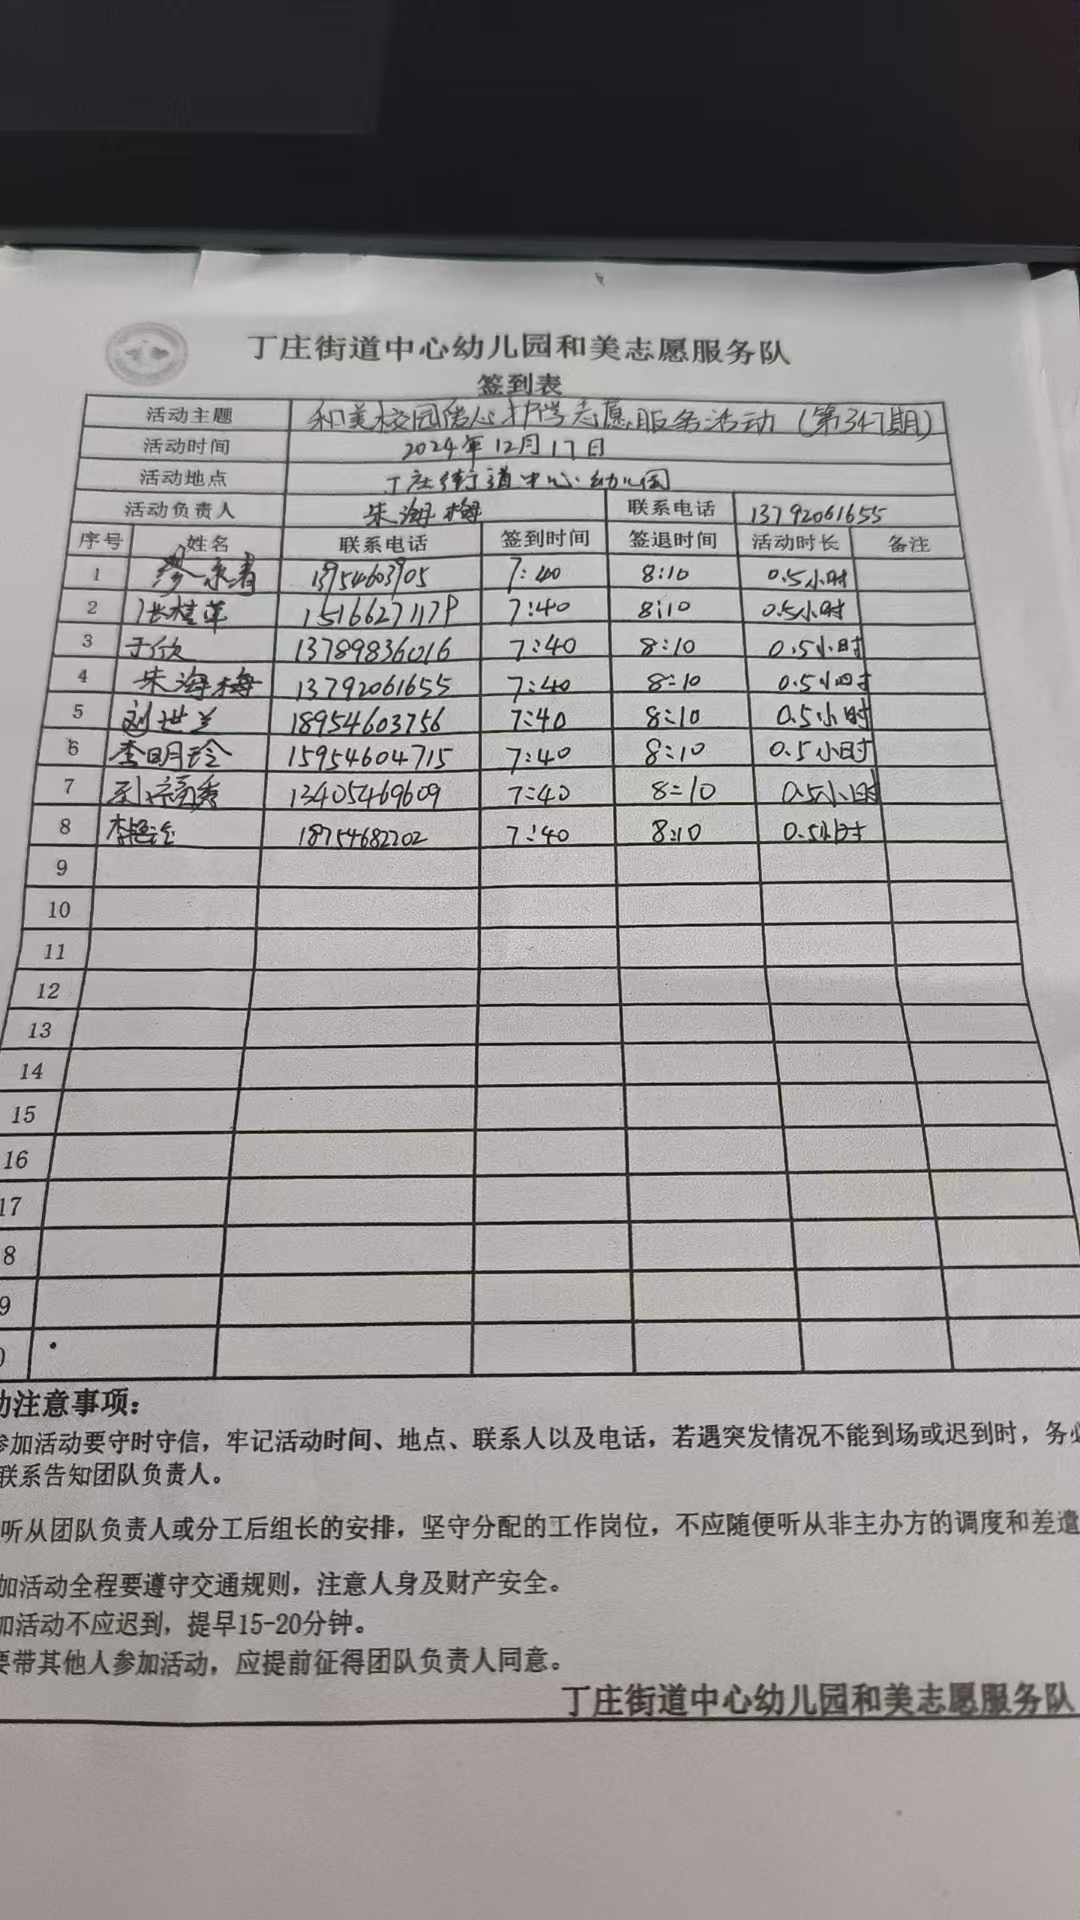 丁庄街道中心幼儿园和美志愿服务队
签到表
活动主题 和美校园暖心护学志愿服务活动(第347期)
活动时间 2024年12月17日
活动地点 丁庄街道中心幼儿园
活动负责人 朱海梅 联系电话 13792061655
序号 姓名 联系电话 签到时间 签退时间 活动时长 备注
1 13954603905 7:40 8:10 0.5小时
2 张桂莲 7:40 8:10 0.5小时
3 于欣 13789836016 7:40 8:10 0.5小时
4 朱海梅 13792061655 7:40 8:10 0.5小时
5 刘世兰 18954603756 7:40 8:10 0.5小时
6 李明玲 15954604715 7:40 8:10 0.5小时
7 13405469609 7:40 8:10 0.5小时
8 18754682202 7:40 8:10 0.5小时
9
10
11
12
13
14
15
16
17
8
9
0
动注意事项:
参加活动要守时守信,牢记活动时间、地点、联系人以及电话,若遇突发情况不能到场或迟到时,务必
联系告知团队负责人。
听从团队负责人或分工后组长的安排,坚守分配的工作岗位,不应随便听从非主办方的调度和差遣
加活动全程要遵守交通规则,注意人身及财产安全。
加活动不应迟到,提早15-20分钟。
要带其他人参加活动,应提前征得团队负责人同意。
丁庄街道中心幼儿园和美志愿服务队